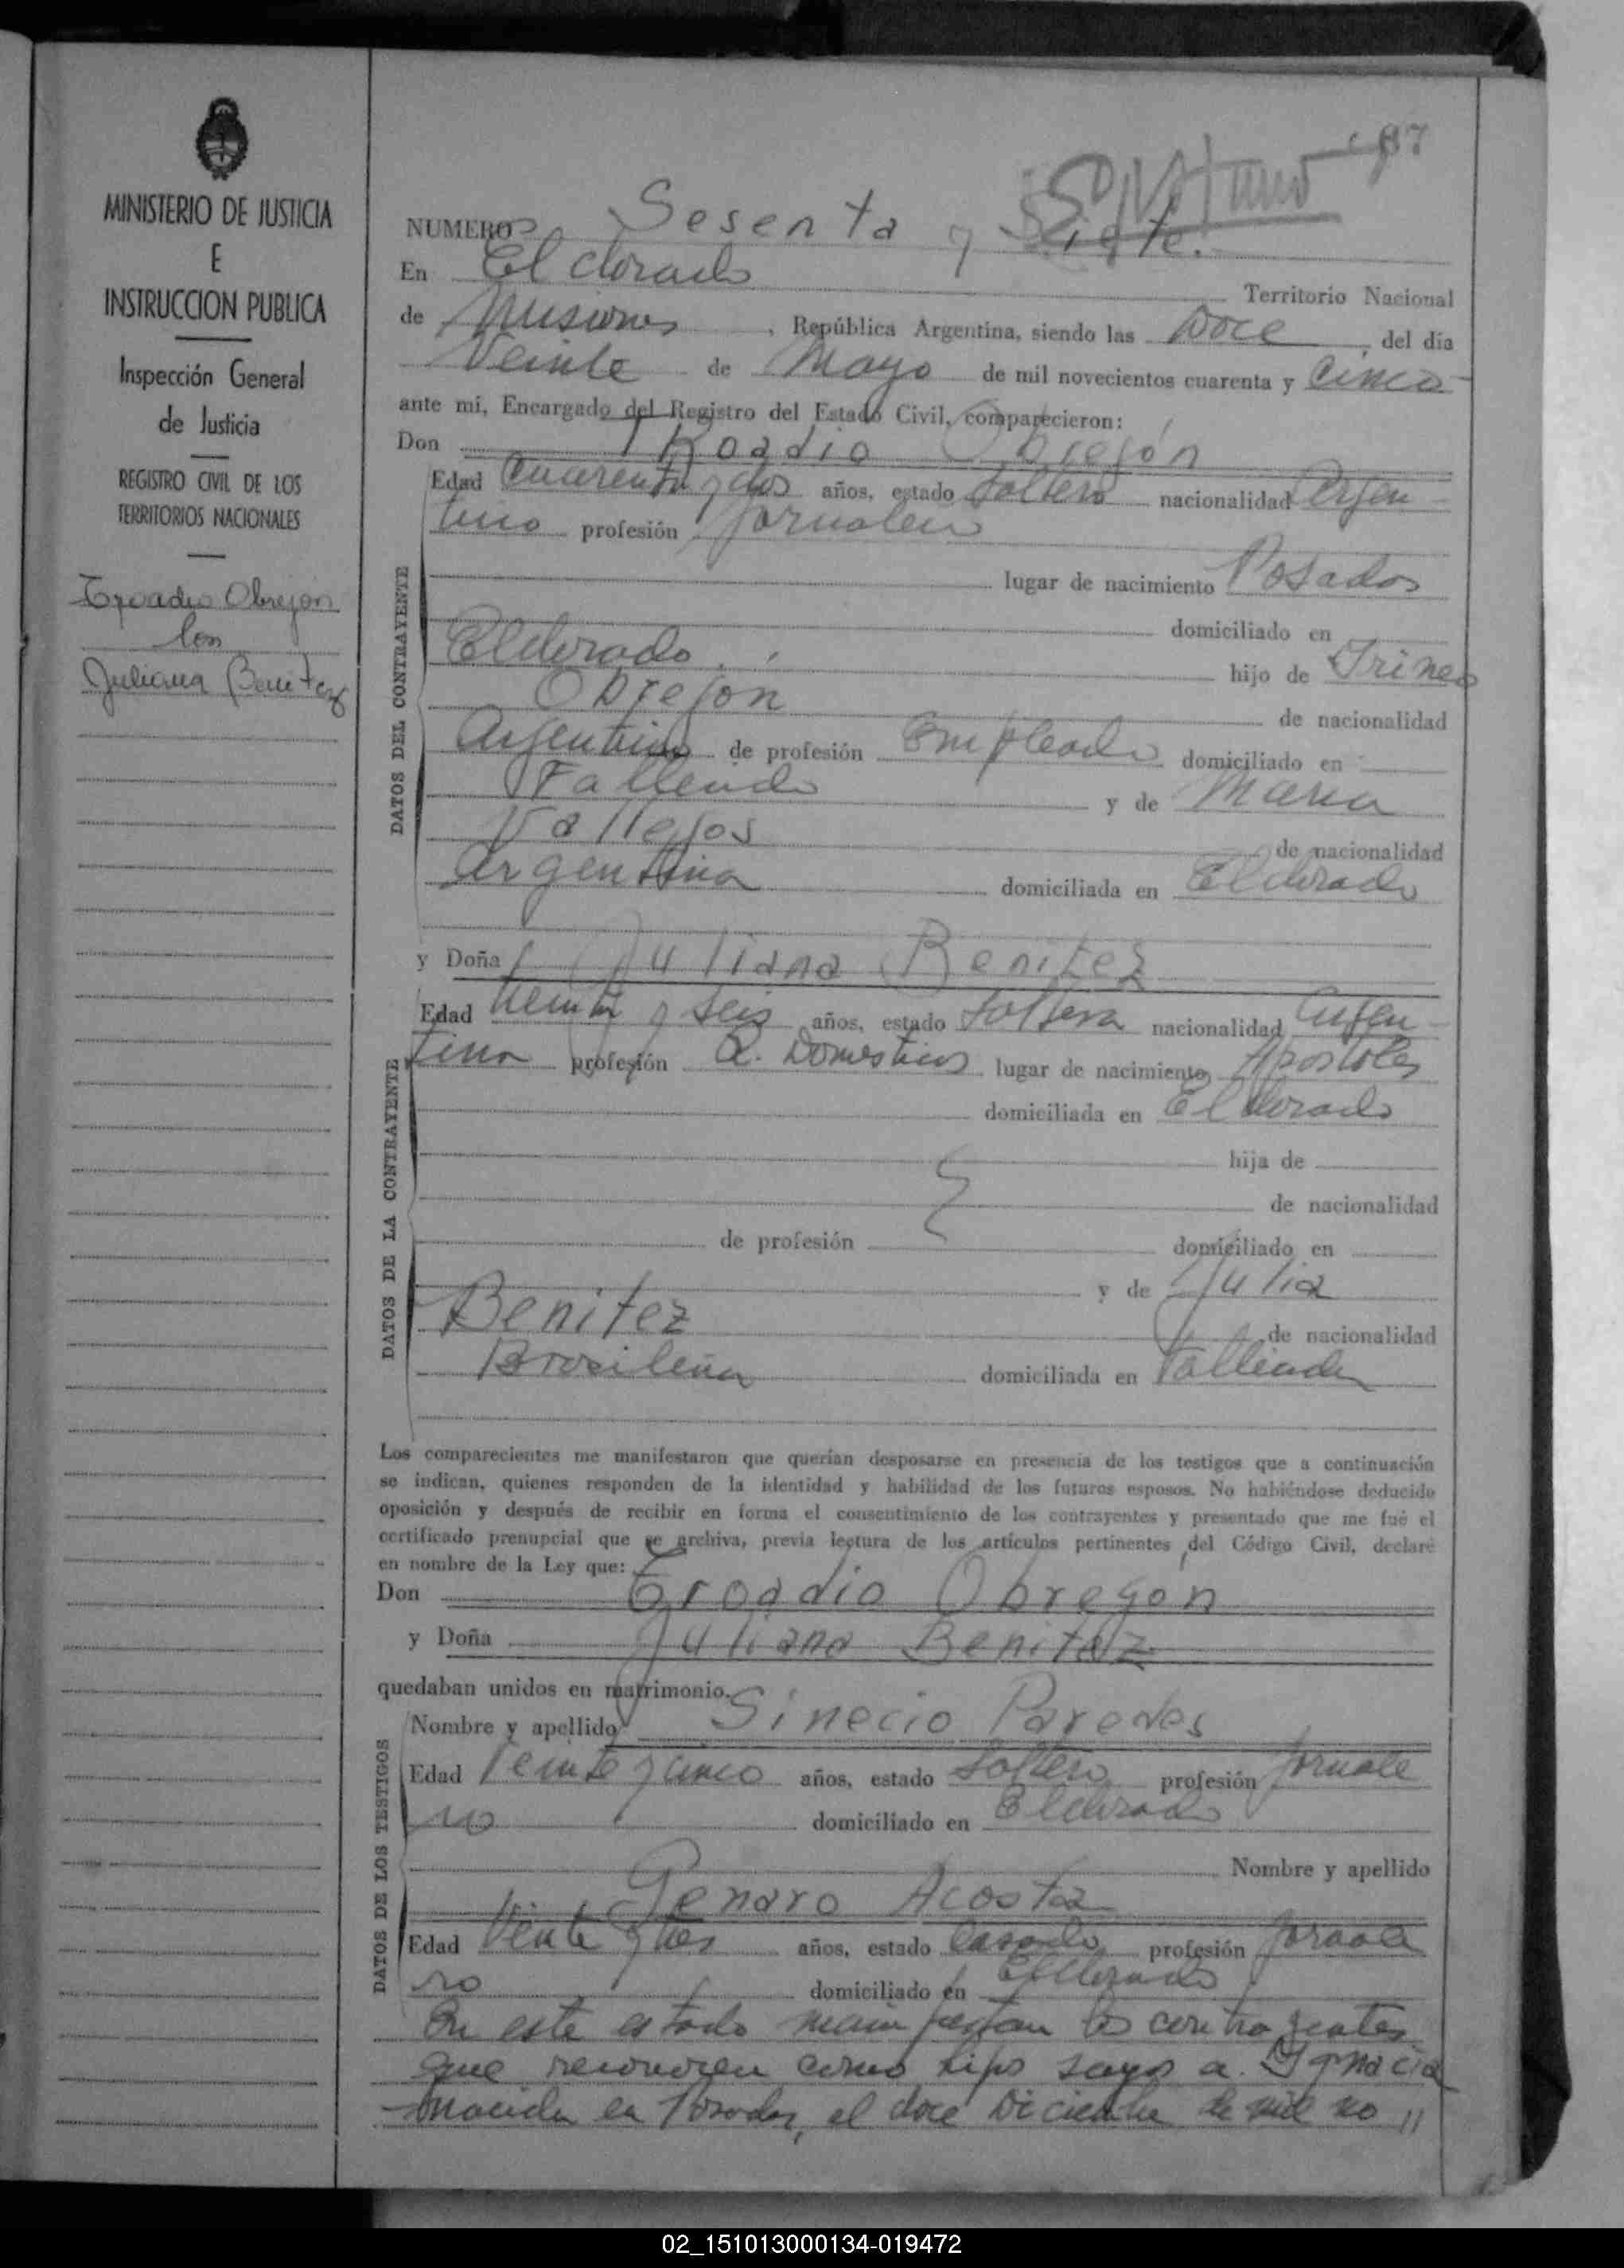 87
MINISTERIO DE JUSTICIA
E
INSTRUCCION PUBLICA
Inspección General
de Justicia
REGISTRO CIVIL DE LOS
TERRITORIOS NACIONALES
Obregon
con
Juliana Benitez
NUMERO Sesenta y Siete.
En Eldorado Territorio Nacional
de Misiones, República Argentina, siendo las Doce, del día
Veinte de Mayo de mil novecientos cuarenta y Cinco
ante mi, Encargado del Registro del Estado Civil, comparecieron:
Don Obregón
Edad Cuarenta y dos años, estado Soltero nacionalidad Argen-
tino profesión Jornalero
lugar de nacimiento Posadas
domiciliado en
Eldorado. hijo de Irineo
Obregon de nacionalidad
Argentino de profesión Empleado domiciliado en
Fallecido y de Maria
Vallejos de nacionalidad
Argentina domiciliada en Eldorado
y Doña Juliana Benitez
Edad Veinte y Seis años, estado Soltera nacionalidad Argen-
tina profesión Q. Domesticos lugar de nacimiento Apostoles
domiciliada en Eldorado
hija de
de nacionalidad
de profesión domiciliado en
y de Julia
Benitez de nacionalidad
Brasileña domiciliada en Fallecida
DATOS DEL CONTRAYENTE
DATOS DE LA CONTRAYENTE
Los comparecientes me manifestaron que querían desposarse en presencia de los testigos que a continuación
se indican, quienes responden de la identidad y habilidad de los futuros esposos. No habiéndose deducido
oposición y después de recibir en forma el consentimiento de los contrayentes y presentado que me fué el
certificado prenupcial que se archiva, previa lectura de los artículos pertinentes del Código Civil, declaré
en nombre de la Ley que:
Don Eroadio Obregon
y Doña Juliana Benitez
quedaban unidos en matrimonio.
Nombre y apellido Sinecio Paredes
Edad Veinte y cinco años, estado Soltero profesión Jornale
ro domiciliado en Eldorado
Nombre y apellido
Genaro Acosta
Edad Veinte y tres años, estado Casado profesión Jornale
ro domiciliado en Eldorado
DATOS DE LOS TESTIGOS
En este estado manifiestan los contrayentes
que reconocen como hijos suyos a Ignacia
nacida en Posadas, el doce Diciembre de mil no
02_151013000134-019472